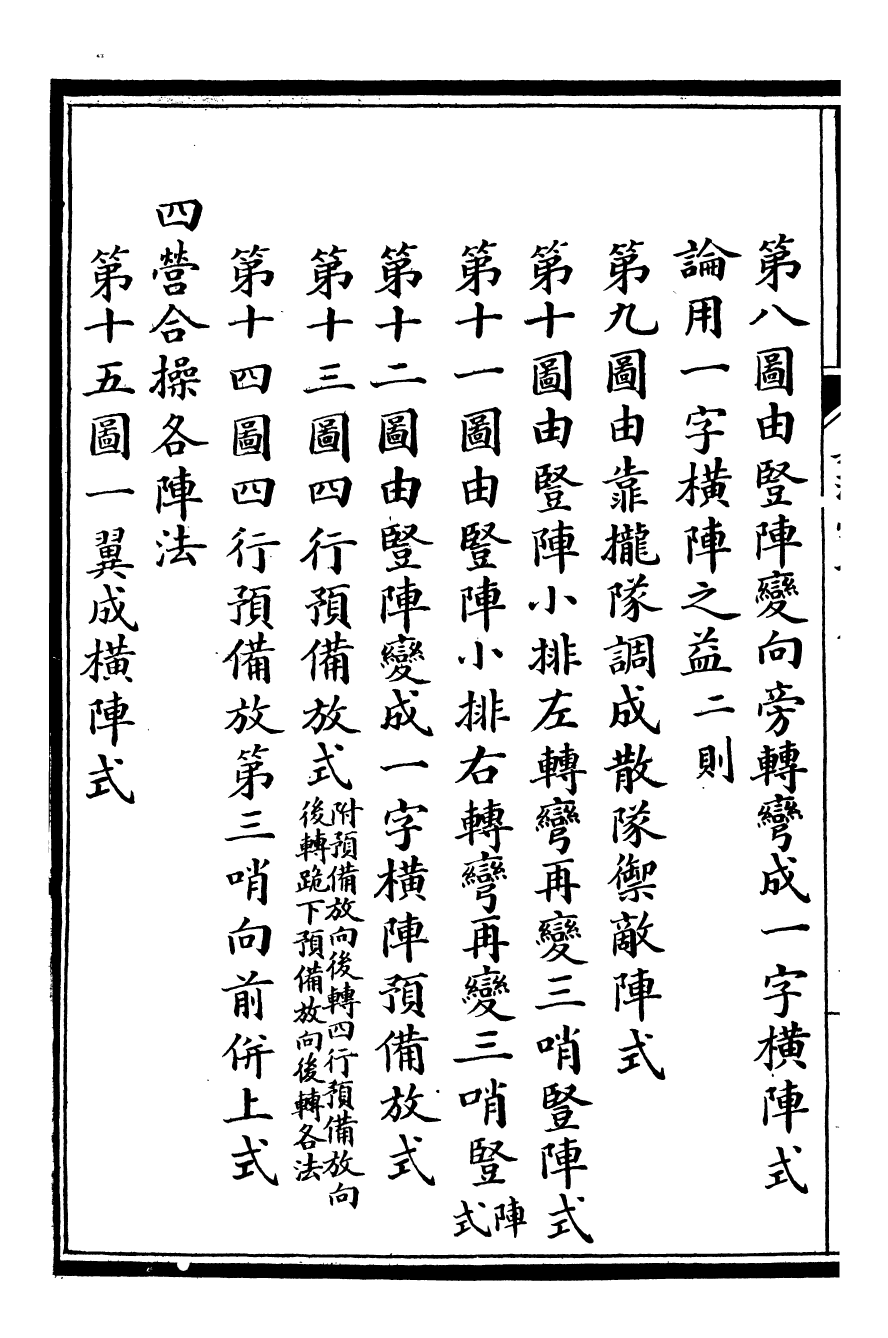 第八圖由豎陣變向旁轉彎成一字橫陣式
論用一字橫陣之益二則
第九圖由靠攏隊調成散隊禦敵陣式
第十圖由豎陣小排左轉彎再變三哨豎陣式
第十一圖由豎陣小排右轉彎再變三哨豎陣式
第十二圖由豎陣變成一字橫陣預備放式
第十三圖四行預備放式附預備放向後轉四行預備放向後轉跪下預備放向後轉各法
第十四圖四行預備放第三哨向前併上式
四營合操各陣法
第十五圖一翼成橫陣式